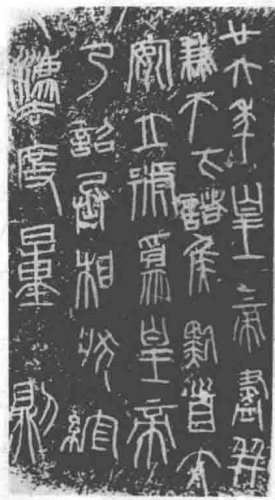 廿六年皇帝盡并
兼天下諸侯黔首大
安立號為皇帝
乃詔丞相狀綰
灋度量則